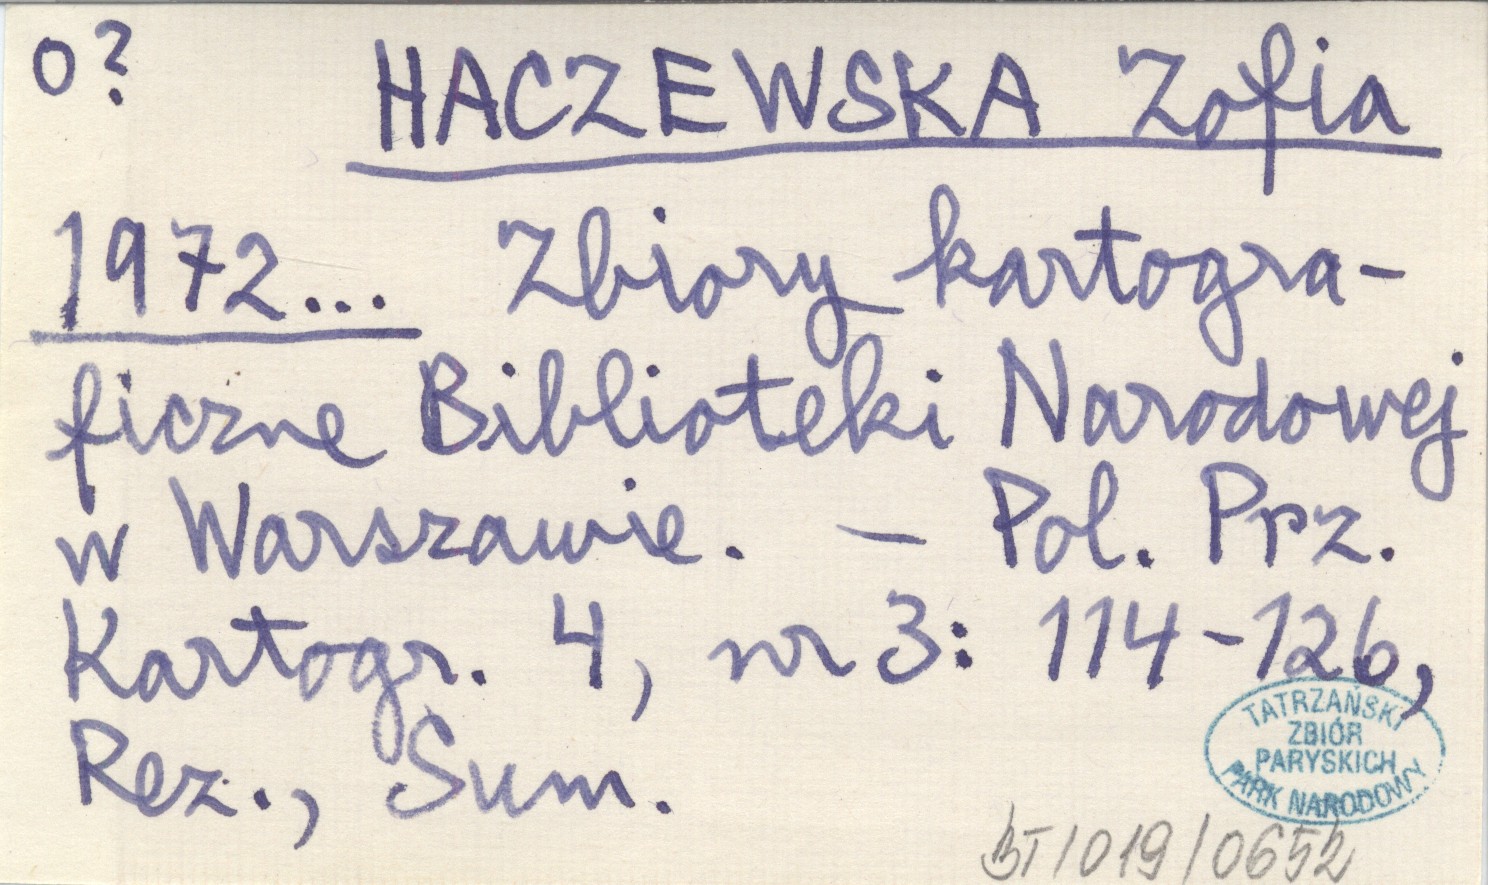 o?
HACZEWSKA Zofia
1972... Zbiory kartogra-
ficzne Biblioteki Narodowej
w Warszawie. – Pol. Prz.
Kartogr. 4, nr 3: 114-126,
Rez., Sum.
TATRZAŃSKI
ZBIÓR
PARYSKICH
PARK NARODOWY
BT/019/0652